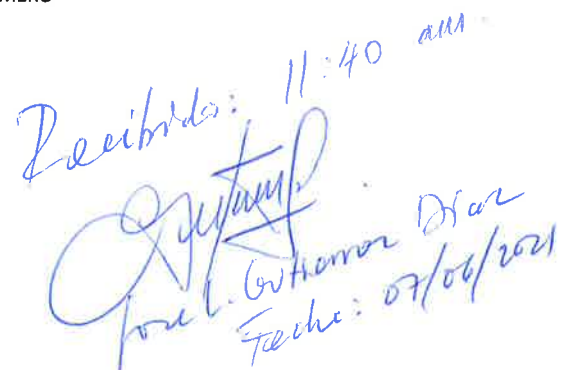 Recibido: 11:40 am.
Jose L. Gutierrez Diaz
Fecha: 07/06/2021